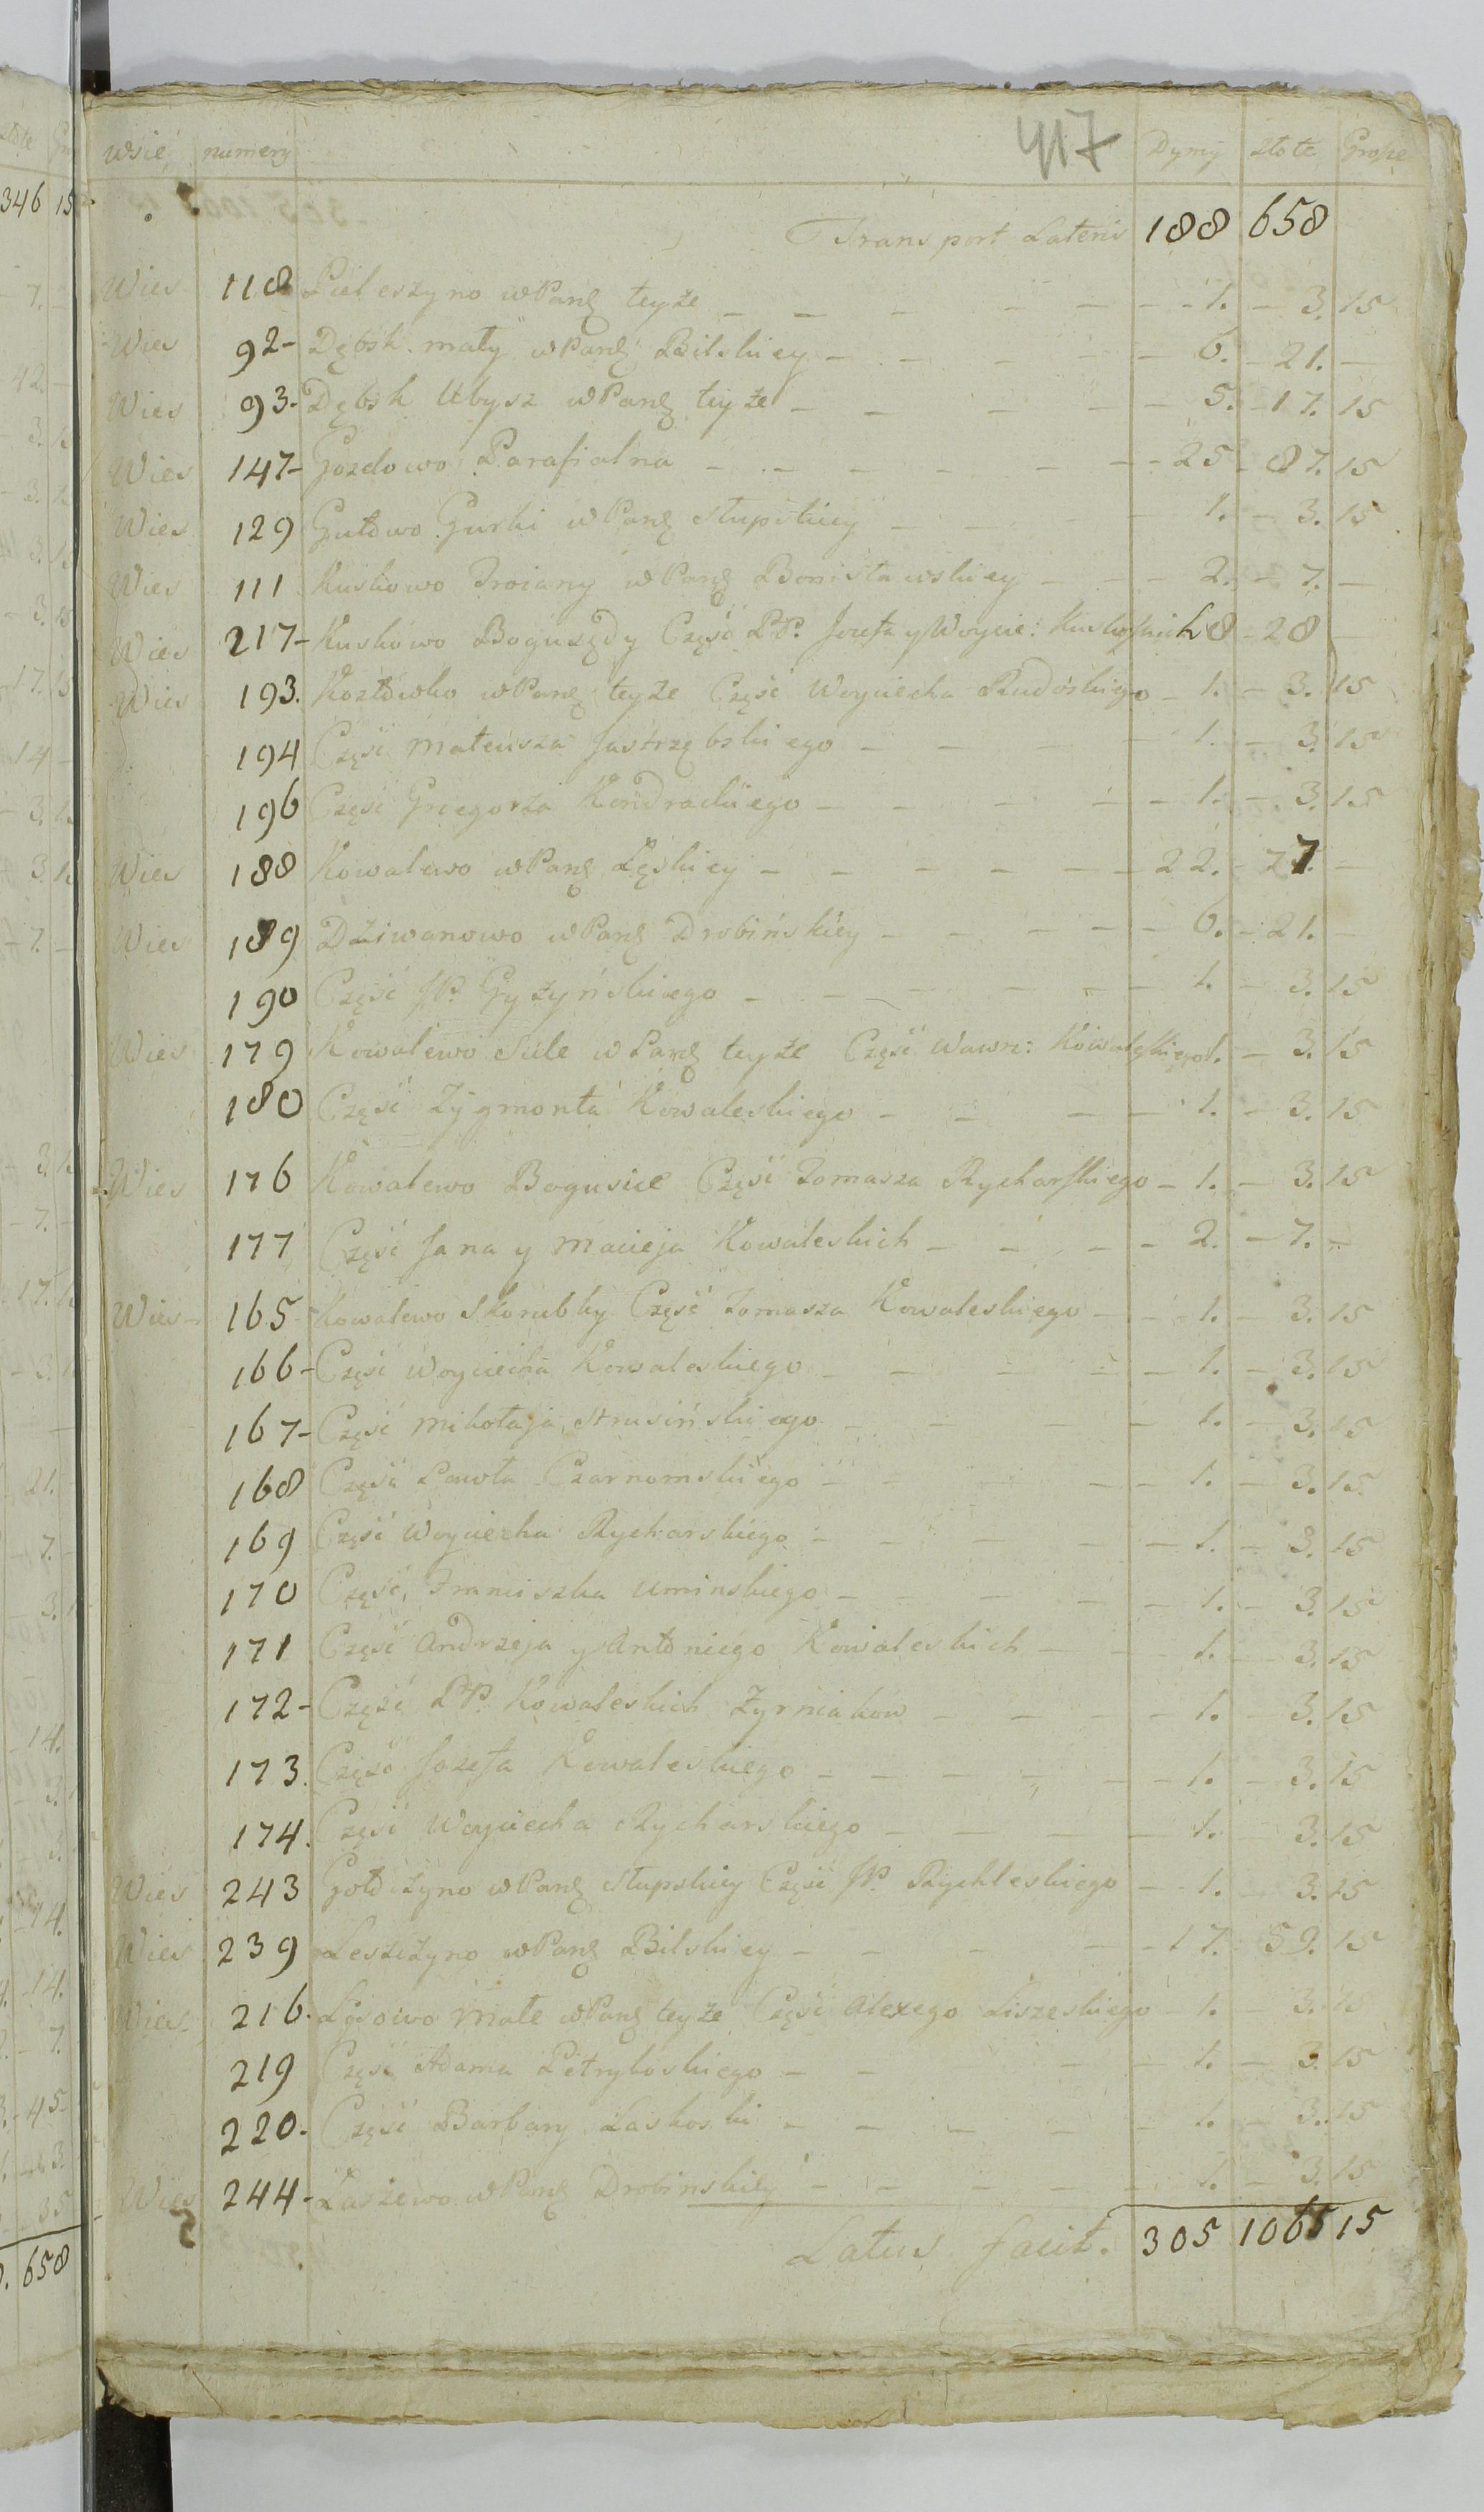 417
wsie numery Dymy złote Grosze
Transport Lateris 188 658
Wies 118 Pieleszyno w Parã teyże – 1. – 3. 15
Wies 92 – Dębsk mały w Parã Bilskiey – 6. – 21. –
Wies 93 – Dębsk Ubysz w Parã teyże – 5. – 17. 15
Wies 147 – Gozdowo Parafialna – 25 – 87. 15
Wies 129 Gutowo Gurki w Parã słupskiey – 1. – 3. 15
Wies 111 Kuskowo Troiany w Parã Bonisławskiey – 2. – 7. –
Wies 217 – Kuskowo Bogusędy Część PP. Jozefa y Woycie: Kuskoskich 8 – 28
Wies 193. Kozłowko w Parã teyże Część Woyciecha Rudoskiego – 1. – 3. 15
194 Część Mateusza Jastrzębskiego – 1. – 3. 15
196 Część Grzegorza Kondrackiego – 1. – 3. 15
Wies 188 Kowalewo w Parã Łęskiey – 22. – 77. –
Wies 189 Dziwanowo w Parã Drobińskiey – 6. – 21. –
190 Część JP. Gyżyńskiego – 1. – 3. 15
Wies 179 Kowalewo Sule w Parã teyże Część Wawrz: Kowaleskiego 1. – 3. 15
180 Część Zygmonta Kowaleskiego – 1. – 3. 15
Wies 176 Kowalewo Bogusice Część Tomasza Rycharskiego – 1. – 3. 15
177 Część Jana y Macieja Kowaleskich – 2. – 7. –
Wies 165 Kowalewo Skorubky Część Tomasza Kowaleskiego – 1. – 3. 15
166 – Część Woyciecha Kowaleskiego – 1. – 3. 15
167 – Część Mikołaja Strusińskiego – 1. – 3. 15
168 Część Pawła Czarnomskiego – 1. – 3. 15
169 Część Woyciecha Rycharskiego – 1. – 3. 15
170 Część Franciszka Uminskiego – 1. – 3. 15
171 Część Andrzeja y Antoniego Kowaleskich – 1. – 3. 15
172 – Część PP. Kowaleskich Zyrniakow – 1. – 3. 15
173. Część Jozefa Kowaleskiego – 1. – 3. 15
174. Część Woyciecha Rycharskiego – 1. – 3. 15
Wies 243 Gołdżyno w Parã słupskiey Część JP. Rychleskiego – 1. 3. 15
Wies 239 Leszczyno w Parã Bilskiey – 17. 59. 15
Wies 216. Łysowo Małe w Parã teyże Część Alexego Liszeskiego – 1. – 3. 15
219 Część Adama Petrykoskiego – 1. – 3. 15
220. Część Barbary Laskoski – 1. – 3. 15
Wies 244 – Łaszewo w Parã Drobinskiey – 1. – 3. 15
Latus facit. 305 1065 15